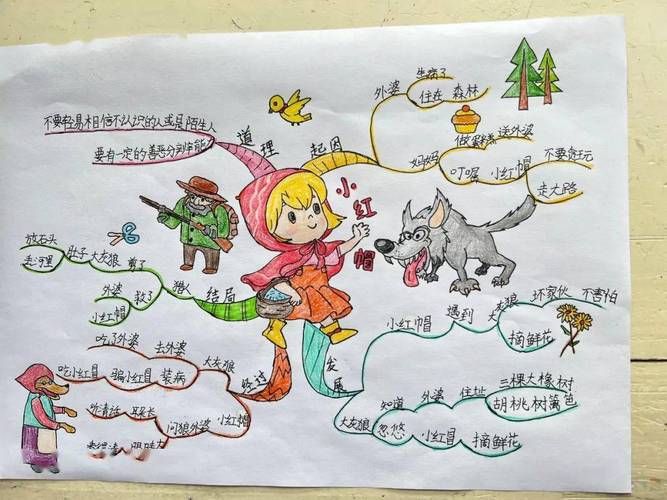 小红帽
起因
外婆
生病了
住在 森林
妈妈
做蛋糕 送外婆
叮嘱 小红帽
不要贪玩
走大路
发展
小红帽 遇到 大灰狼
坏家伙 不害怕
摘鲜花
大灰狼
知道 外婆 住址
三棵大橡树
胡桃树篱笆
忽悠 小红冒 摘鲜花
经过
大灰狼
去外婆
吃了外婆
装病
骗小红冒
吃小红冒
小红帽
问狼外婆
耳朵长
听清话
眼睛大
结局
猎人
剪了
大灰狼
肚子
放石头
救了
外婆
小红帽
道理
不要轻易相信不认识的人或是陌生人
要有一定的善恶分辨能